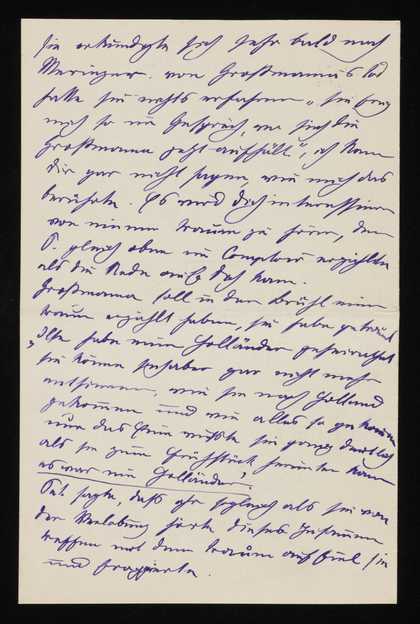 sie erkundigte sich sehr bald nach
Meringer. von Großmanns Tod
hatte sie nichts erfahren „sie frug
mich so im Gespräch, wo sich die
Großmanna jetzt aufhält", ich kann
Dir gar nicht sagen, wie mich das
berührte. Es wird Dich interessieren
von einem Traum zu hören, den
P. gleich oben im Comptoir erzählte
als die Rede auf Dich kam.
Großmanna soll in den Brühl einen
Traum erzählt haben, sie habe geträumt
„Ilse habe einen Holländer geheirathet
sie könne sich aber gar nicht mehr
entsinnen, wie sie nach Holland
gekommen und wie alles so gekommen
nur das Eine wüßte sie ganz deutlich
als sie zum Frühstück herunter kam
es war ein Holländer."
sagte, daß ihr sogleich als sie von
der Verlobung hörte dieses Zusammen
treffen mit dem Traum auffiel sie
und frappierte.